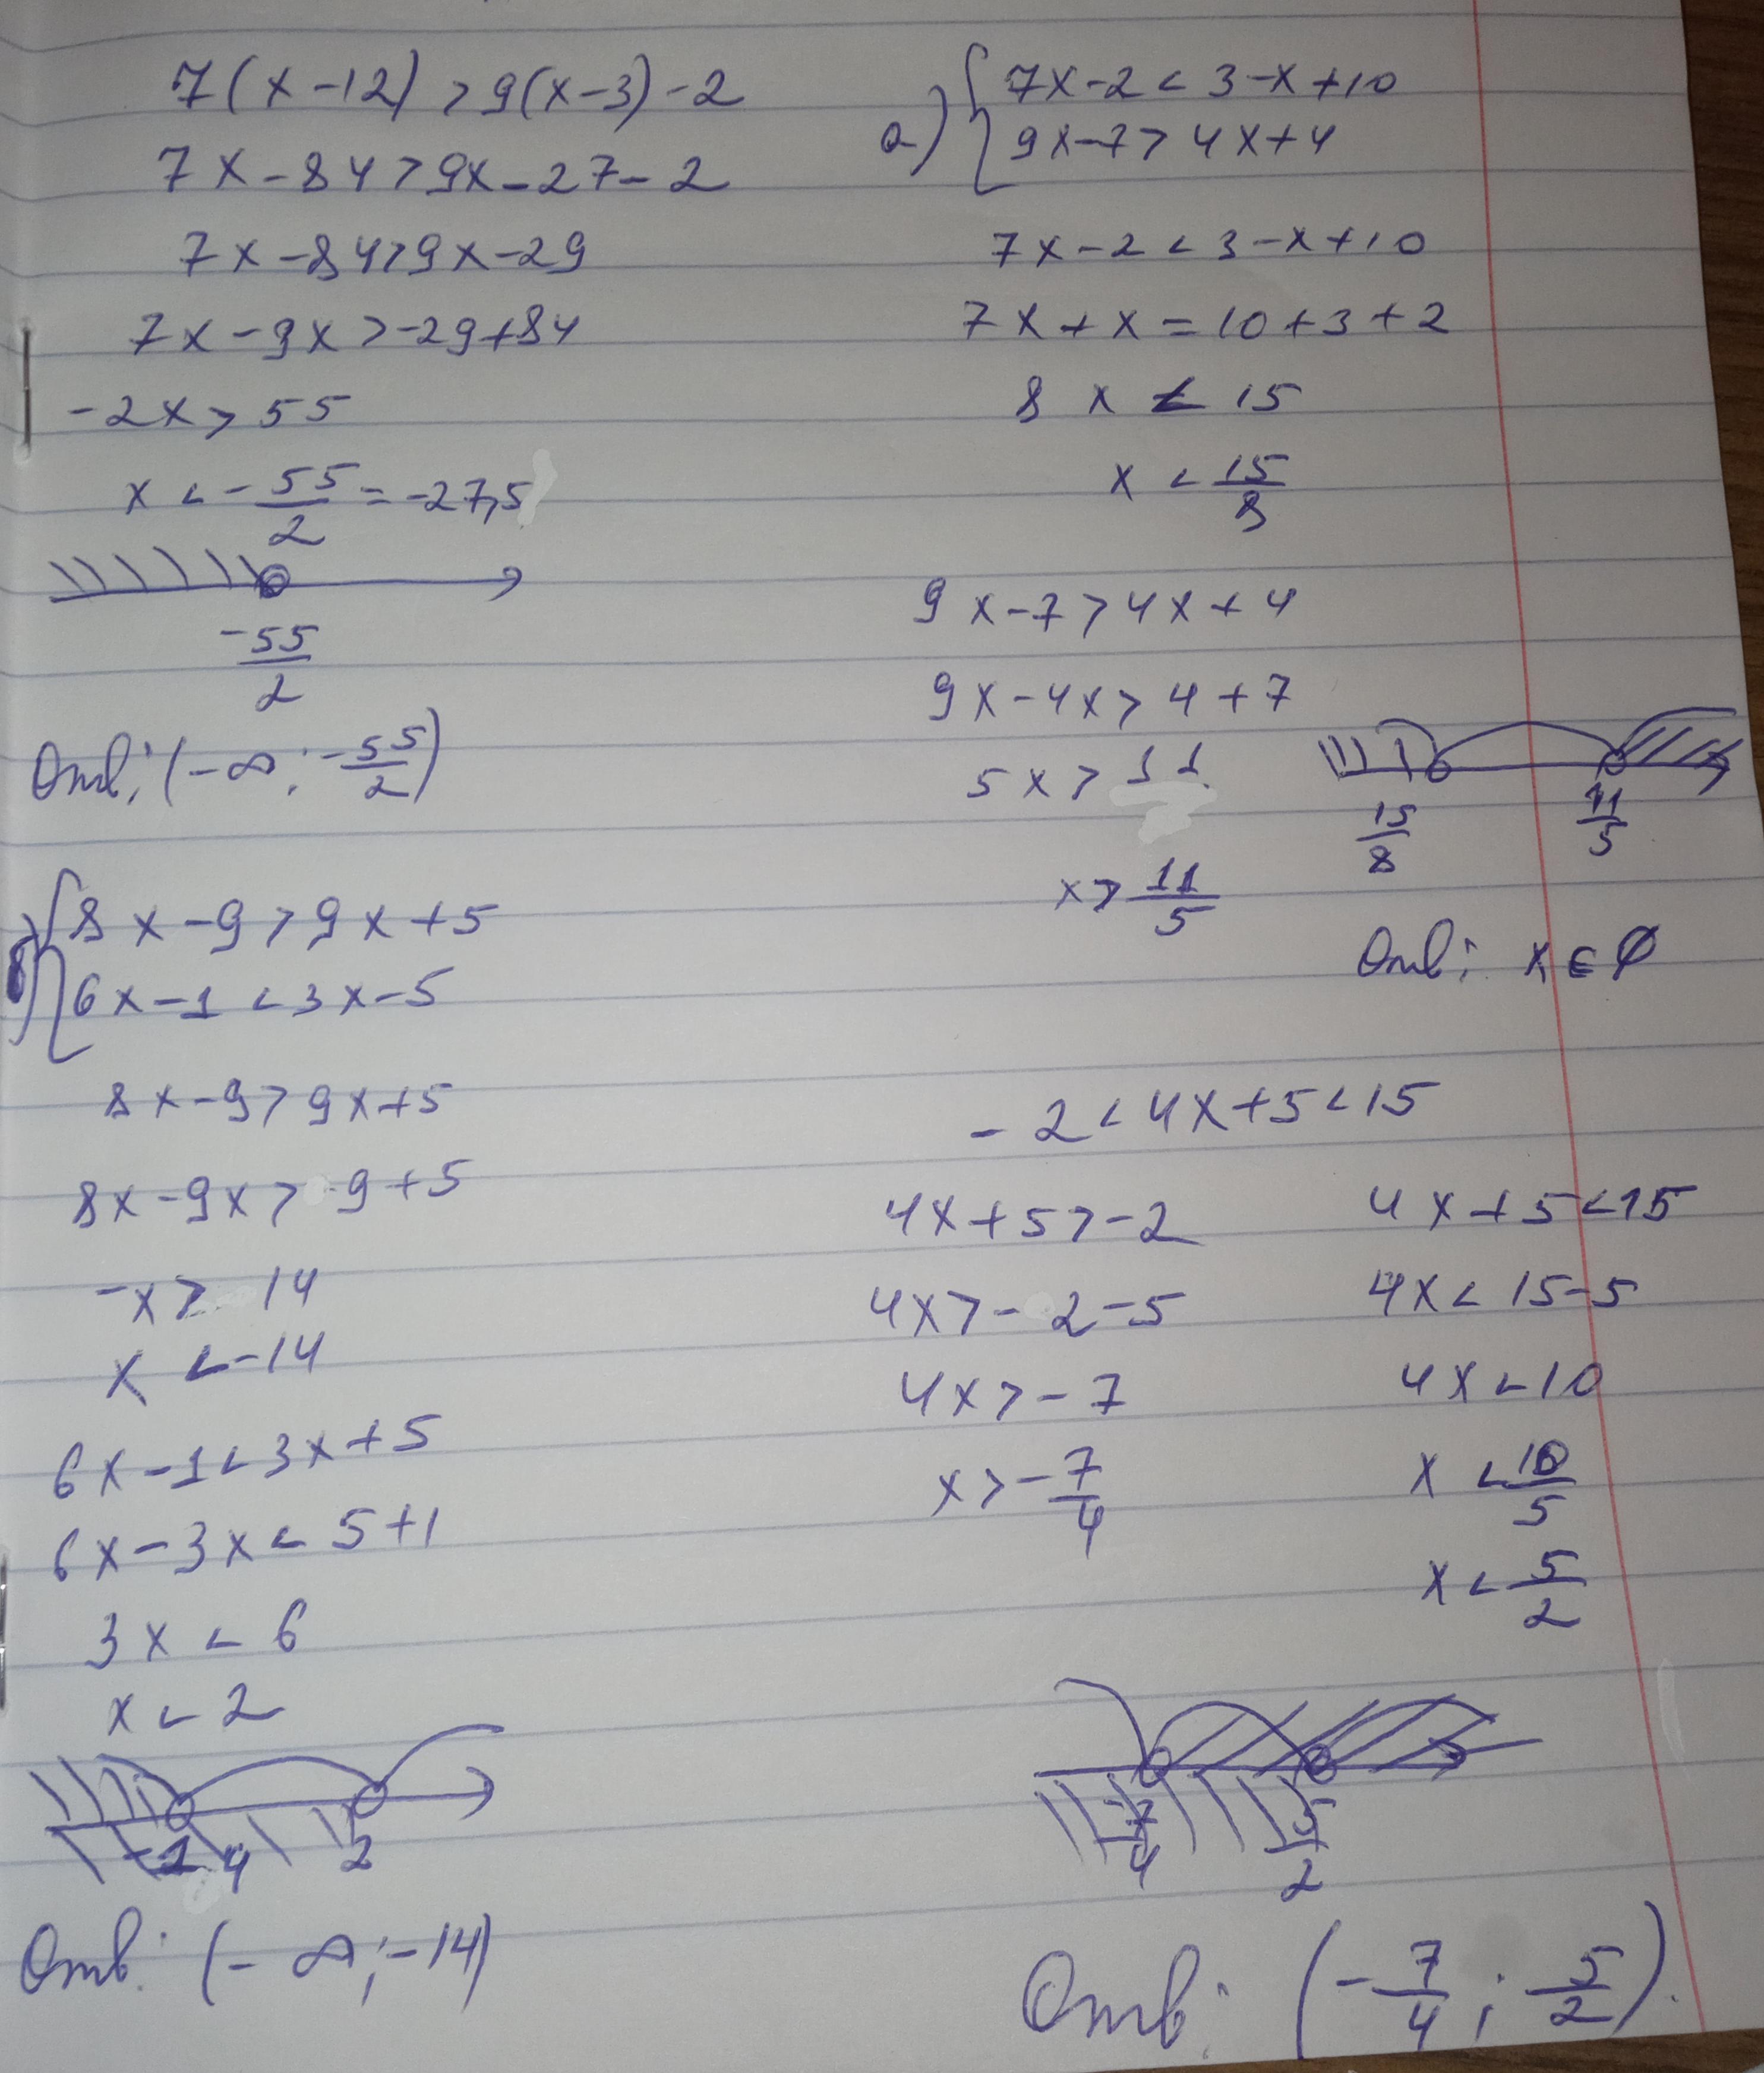 7(x-12)>9(x-3)-2
7x-84>9x-27-2
7x-84>9x-29
7x-9x>-29+84
-2x>55
x<-55/2=-27,5
-55/2
Отв: (-∞; -55/2)
б) { 8x-9>9x+5
6x-1<3x-5
8x-9>9x+5
8x-9x>9+5
-x>14
x<-14
6x-1<3x+5
6x-3x<5+1
3x<6
x<2
-14 2
Отв: (-∞; -14)
а) { 7x-2<3-x+10
9x-7>4x+4
7x-2<3-x+10
7x+x=10+3+2
8x<15
x<15/8
9x-7>4x+4
9x-4x>4+7
5x>11
x>11/5
15/8 11/5
Отв: x∈∅
-2<4x+5<15
4x+5>-2
4x>-2-5
4x>-7
x>-7/4
4x+5<15
4x<15-5
4x<10
x<10/5
x<5/2
-7/4 5/2
Отв: (-7/4; 5/2).